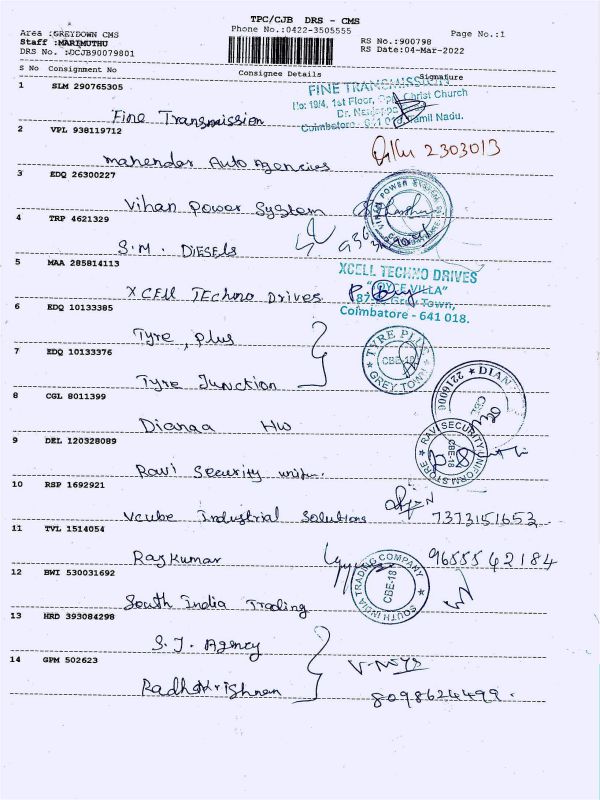 TPC/CJB DRS - CMS
Area :GREYDOWN CMS
Phone No.:0422-3505555
Page No.:1
Staff :MARIMUTHU
RS No.:900798
DRS No. :DCJB90079801
RS Date:04-Mar-2022
S No Consignment No Consignee Details Signature
1 SLM 290765305
FINE TRANSMISSION
No: 19/4, 1st Floor, Opp. Christ Church
Coimbatore - 641 018 Tamil Nadu.
Fine Transmission
2 VPL 938119712
2303013
mahender Auto Agencies
3 EDQ 26300227
Vihan Power System
VIHAN POWER SYSTEM
4 TRP 4621329
S.M. DIESELS
5 MAA 285814113
XCELL TECHNO DRIVES
"JOYCE VILLA"
Grey Town,
Coimbatore - 641 018.
XCELL TEChno Drives
6 EDQ 10133385
Tyre plus
TYRE PLUS
CBE-18
GREY TOWN
7 EDQ 10133376
Tyre Junction
8 CGL 8011399
DIAN
2216000
Dianaa Hw
9 DEL 120328089
RAVI SECURITY UNIFORM STORE
CBE-18
Ravi Security unifm.
10 RSP 1692921
Vcube Industrial Solutions 7373151653
11 TVL 1514054
Rajkumar 9655542184
12 BWI 530031692
SOUTH INDIA TRADING COMPANY
CBE-18
South India Trading
13 HRD 393084298
S.J. Agency
14 GPM 502623
RadhaKrishnan 8098624499.